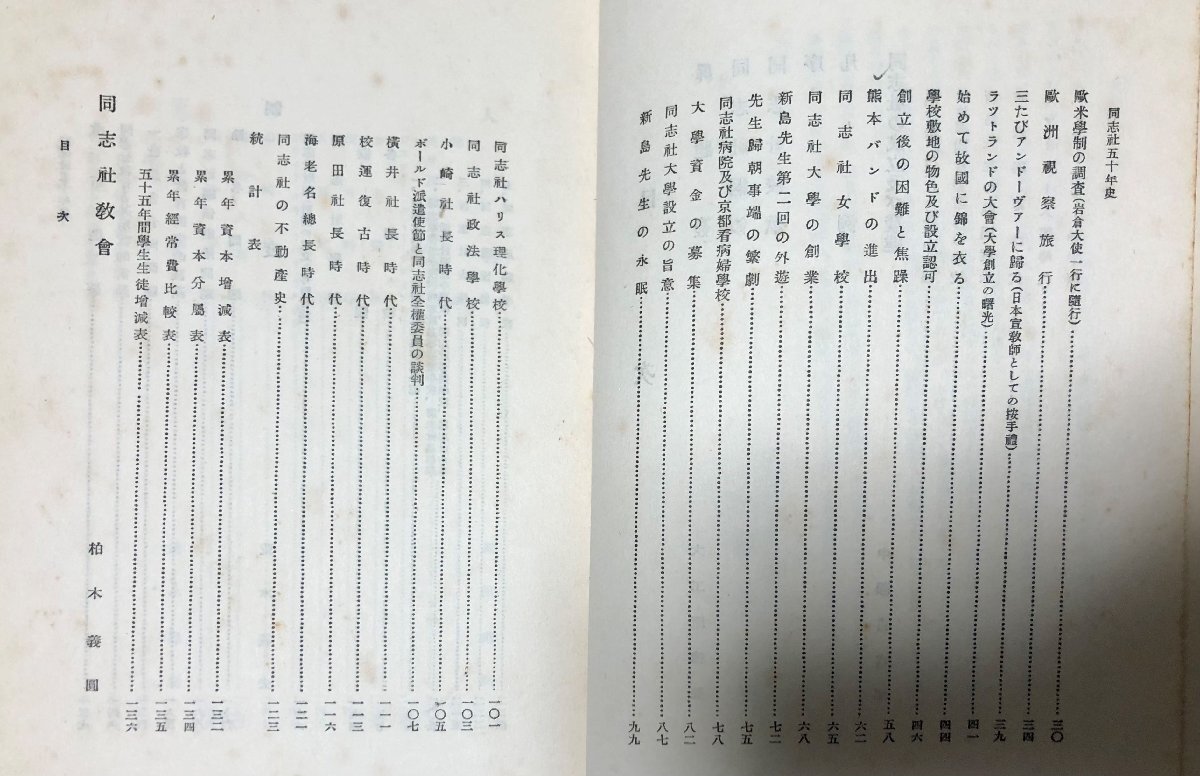 同志社五十年史
歐米學制の調査(岩倉大使一行に隨行)……三〇
歐洲視察旅行……三一
三たびアンドーヴァーに歸る(日本宣敎師としての按手禮)……三四
ラットランドの大會(大學創立の曙光)……三九
始めて故國に錦を衣る……四一
學校敷地の物色及び設立認可……四四
創立後の困難と焦躁……四六
熊本バンドの進出……五八
同志社女學校……六二
同志社大學の創業……六八
新島先生第二回の外遊……七二
先生歸朝事端の繁劇……七五
同志社病院及び京都看病婦學校……七八
大學資金の募集……八二
同志社大學設立の旨意……八七
新島先生の永眠……九九
同志社ハリス理化學校……一〇一
同志社政法學校……一〇三
小崎社長時代……一〇五
ボールド派遣使節と同志社全權委員の談判……一〇七
横井社長時代……一一一
校運復古時代……一一三
原田社長時代……一一六
海老名總長時代……一二一
同志社の不動產史……一二三
統計表
累年資本增減表……一三二
累年資本分屬表……一三四
累年經常費比較表……一三五
五十五年間學生生徒增減表……一三六
同志社敎會 柏木義圓
目次